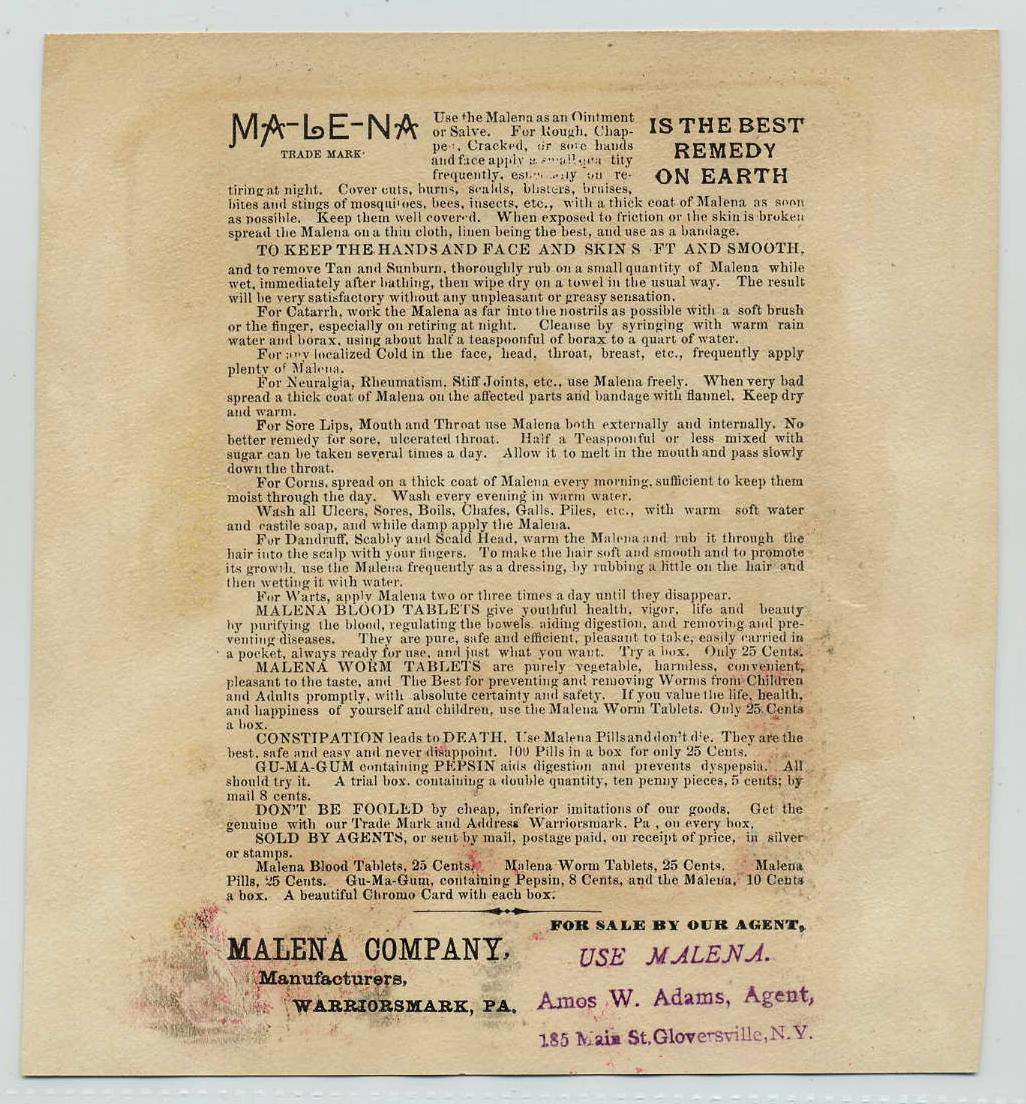 MA-LE-NA
TRADE MARK.
Use the Malena as an Ointment
or Salve. For Rough, Chap-
pe , Cracked, or sore hands
and face apply a small tity
frequently, on re-
IS THE BEST
REMEDY
ON EARTH
tiring at night. Cover cuts, burns, scalds, blisters, bruises,
bites and stings of mosquitoes, bees, insects, etc., with a thick coat of Malena as soon
as possible. Keep them well covered. When exposed to friction or the skin is broken
spread the Malena on a thin cloth, linen being the best, and use as a bandage.
TO KEEP THE HANDS AND FACE AND SKIN S FT AND SMOOTH,
and to remove Tan and Sunburn, thoroughly rub on a small quantity of Malena while
wet, immediately after bathing, then wipe dry on a towel in the usual way. The result
will be very satisfactory without any unpleasant or greasy sensation.
For Catarrh, work the Malena as far into the nostrils as possible with a soft brush
or the finger, especially on retiring at night. Cleanse by syringing with warm rain
water and borax, using about half a teaspoonful of borax to a quart of water.
For any localized Cold in the face, head, throat, breast, etc., frequently apply
plenty of Malena.
For Neuralgia, Rheumatism, Stiff Joints, etc., use Malena freely. When very bad
spread a thick coat of Malena on the affected parts and bandage with flannel. Keep dry
and warm.
For Sore Lips, Mouth and Throat use Malena both externally and internally. No
better remedy for sore, ulcerated throat. Half a Teaspoonful or less mixed with
sugar can be taken several times a day. Allow it to melt in the mouth and pass slowly
down the throat.
For Corns, spread on a thick coat of Malena every morning, sufficient to keep them
moist through the day. Wash every evening in warm water.
Wash all Ulcers, Sores, Boils, Chafes, Galls, Piles, etc., with warm soft water
and castile soap, and while damp apply the Malena.
For Dandruff, Scabby and Scald Head, warm the Malena and rub it through the
hair into the scalp with your fingers. To make the hair soft and smooth and to promote
its growth, use the Malena frequently as a dressing, by rubbing a little on the hair and
then wetting it with water.
For Warts, apply Malena two or three times a day until they disappear.
MALENA BLOOD TABLETS give youthful health, vigor, life and beauty
by purifying the blood, regulating the bowels, aiding digestion, and removing and pre-
venting diseases. They are pure, safe and efficient, pleasant to take, easily carried in
a pocket, always ready for use, and just what you want. Try a box. Only 25 Cents.
MALENA WORM TABLETS are purely vegetable, harmless, convenient,
pleasant to the taste, and The Best for preventing and removing Worms from Children
and Adults promptly, with absolute certainty and safety. If you value the life, health,
and happiness of yourself and children, use the Malena Worm Tablets. Only 25 Cents
a box.
CONSTIPATION leads to DEATH. Use Malena Pills and don't die. They are the
best, safe and easy and never disappoint. 100 Pills in a box for only 25 Cents.
GU-MA-GUM containing PEPSIN aids digestion and prevents dyspepsia. All
should try it. A trial box, containing a double quantity, ten penny pieces, 5 cents; by
mail 8 cents.
DON'T BE FOOLED by cheap, inferior imitations of our goods. Get the
genuine with our Trade Mark and Address Warriorsmark, Pa , on every box.
SOLD BY AGENTS, or sent by mail, postage paid, on receipt of price, in silver
or stamps.
Malena Blood Tablets, 25 Cents. Malena Worm Tablets, 25 Cents. Malena
Pills, 25 Cents. Gu-Ma-Gum, containing Pepsin, 8 Cents, and the Malena, 10 Cents
a box. A beautiful Chromo Card with each box.
MALENA COMPANY,
Manufacturers,
WARRIORSMARK, PA.
FOR SALE BY OUR AGENT,
USE MALENA.
Amos W. Adams, Agent,
185 Main St, Gloversville, N.Y.